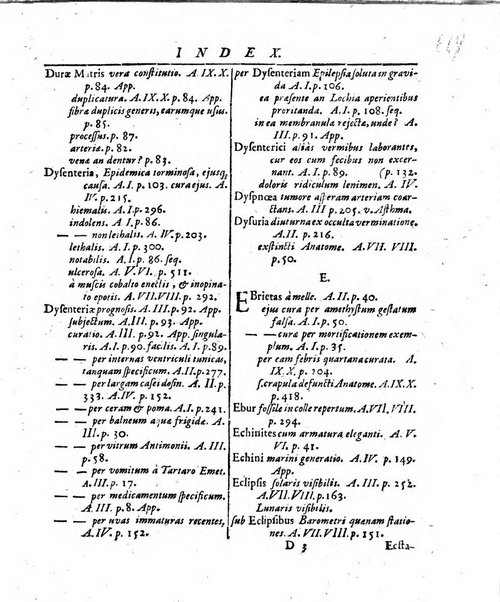 INDEX.
Duræ Matris vera constitutio. A. IX. X.
p. 84. App.
duplicatura. A. IX. X. p. 84. App.
fibræ duplicis generis, earumque usus.
p. 85.
processus. p. 87.
arteriæ. p. 82.
venæ an dentur? p. 83.
Dysenteria, Epidemica torminosa, ejusq;
causa. A. I. p. 103. cura ejus. A.
IV. p. 215.
hiemalis. A. I. p. 296.
indolens. A. I. p. 86.
— — non lethalis. A. IV. p. 203.
lethalis. A. I. p. 300.
notabilis. A. I. p. 86. seq.
ulcerosa. A. V. VI. p. 511.
à muscis cobalto enectis, & inopina-
to epotis. A. VII. VIII. p. 292.
Dysenteriæ prognosis. A. III. p. 92. App.
subjectum. A. III. p. 93. App.
curatio. A. III. p. 92. App. singula-
ris. A. I. p. 90. facilis. A. I. p. 89.
— — per internas ventriculi tunicas,
tanquam specificum. A. II. p. 277.
— — per largam casei desin. A. II. p.
333. A. IV. p. 152.
— — per ceram & poma. A. I. p. 241.
— — per balneum aquæ frigidæ. A.
III. p. 30.
— — per vitrum Antimonii. A. III.
p. 58.
— — per vomitum à Tartaro Emet.
A. III. p. 17.
— — per medicamentum specificum.
A. III. p. 8. App.
— — per uvas immaturas recentes,
A. IV. p. 152.
per Dysenteriam Epilepsia soluta in gravi-
da. A. I. p. 106.
ea præsente an Lochia aperientibus
proritanda. A. I. p. 108. seq.
in ea membranulæ rejectæ, unde? A.
III. p. 91. App.
Dysenterici aliàs vermibus laborantes,
cur eos cum fecibus non excer-
nant. A. I. p. 89. (p. 132.
doloris ridiculum lenimen. A. IV.
Dyspnœa tumore asperam arteriam coar-
ctans. A. III p. 205. v. Asthma.
Dysuria diuturna ex occulta verminatione.
A. II. p. 216.
exstincti Anatome. A. VII. VIII.
p. 50.
E.
EBrietas à melle. A. II. p. 40.
ejus cura per amethystum gestatum
falsa. A. I. p. 50.
— — cura per mortificationem exem-
plum. A. I. p. 35.
per eam febris quartana curata. A.
IX. X. p. 204.
s. crapula defuncti Anatome. A. IX. X.
p. 418.
Ebur fossile in colle repertum. A. VII. VIII.
p. 294.
Echinites cum armatura eleganti. A. V.
VI. p. 260.
Echini marini generatio. A. IV. p. 149.
App.
Eclipsis solaris visibilis. A. III. p. 252.
A. VII. VIII. p. 163.
Lunaris visibilis.
sub Eclipsibus Barometri quænam statio-
nes. A. VII. VIII. p. 151.
D 3 Ecsta-